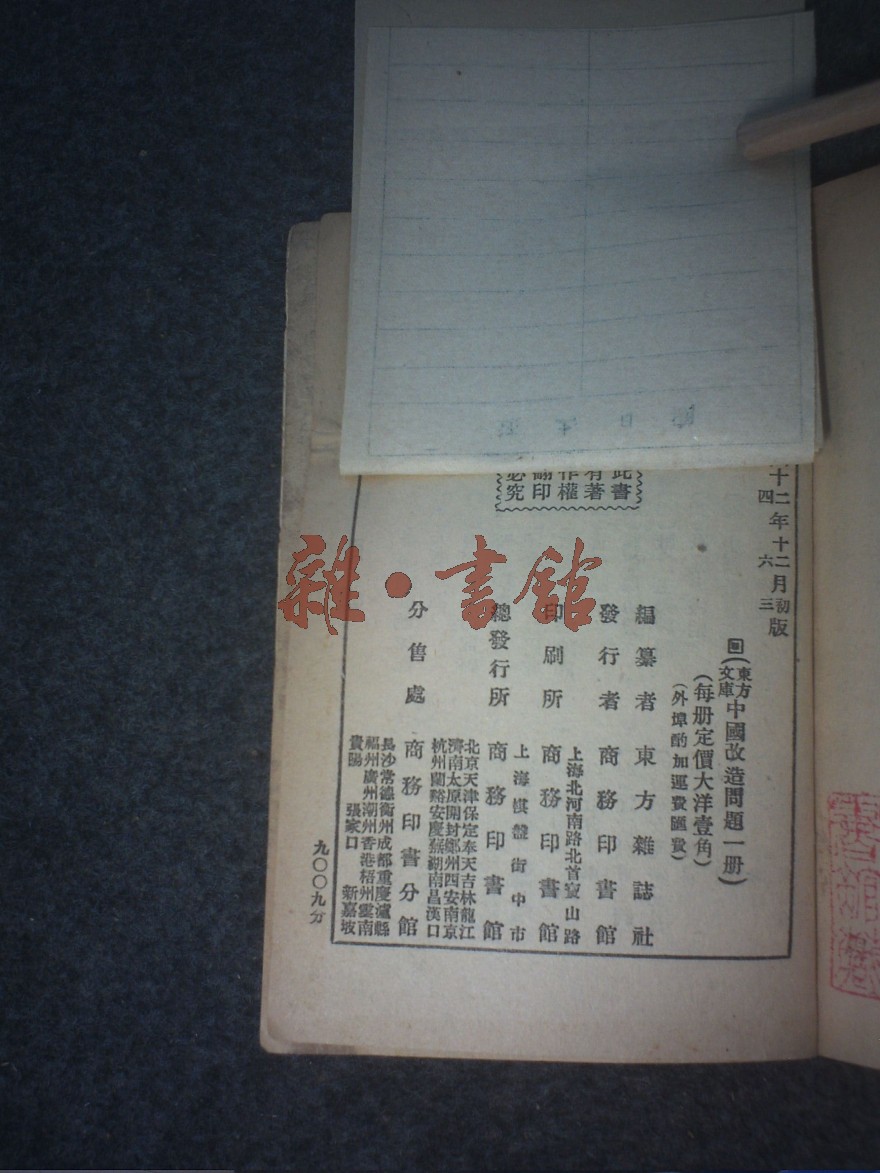 十二年十二月初版
四 六 三
回(東方文庫中國改造問題一册)
(每册定價大洋壹角)
(外埠酌加運費匯費)
此書
有著
作權
翻印
必究
編纂者 東方雜誌社
發行者 商務印書館
上海北河南路北首寶山路
印刷所 商務印書館
上海棋盤街中市
總發行所 商務印書館
北京天津保定奉天吉林龍江
濟南太原開封鄭州西安南京
杭州蘭谿安慶蕪湖南昌漢口
分售處 商務印書分館
長沙常德衡州成都重慶瀘縣
福州廣州潮州香港梧州雲南
貴陽 張家口 新嘉坡
九〇〇九分
雜·書館